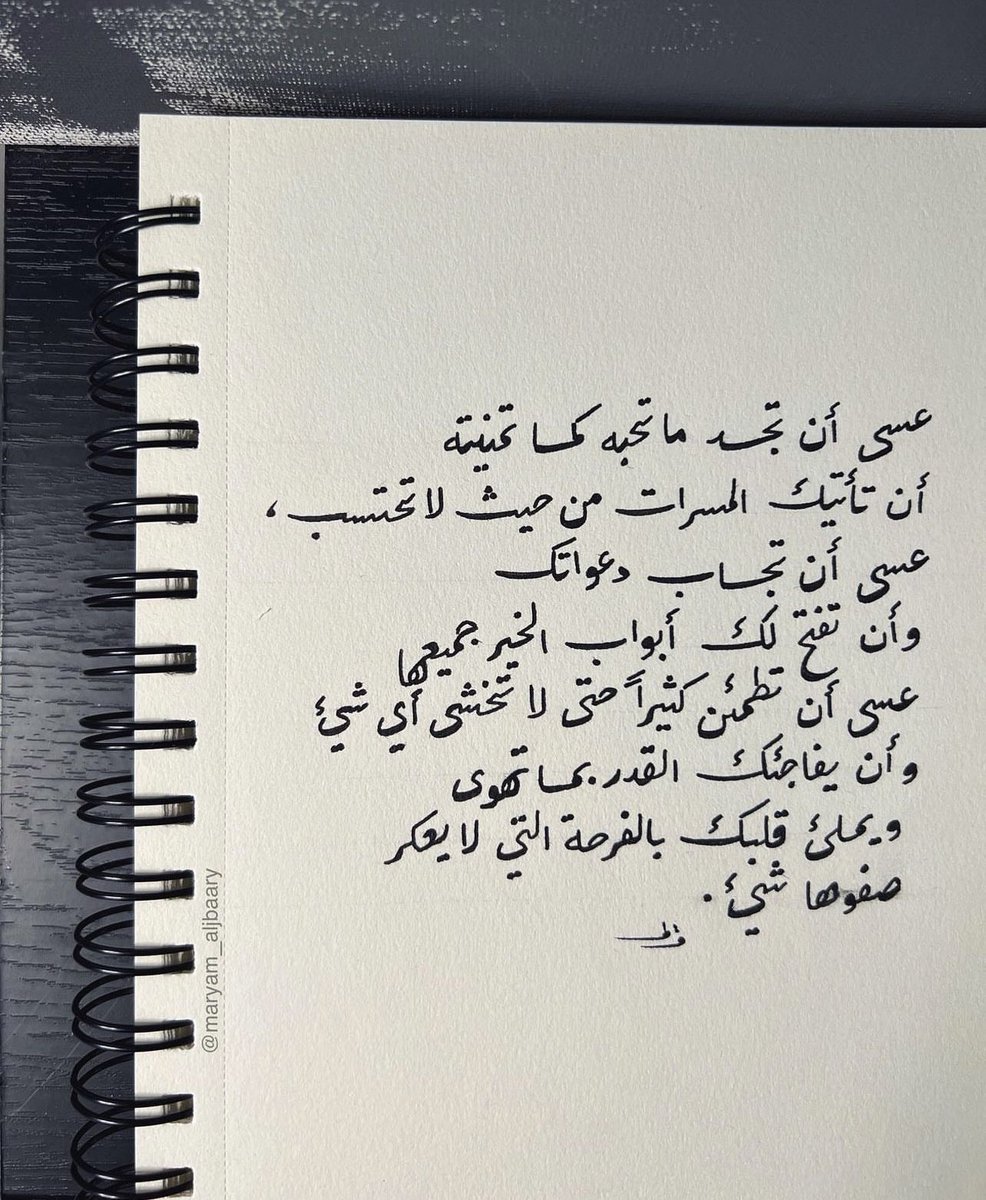 عسى أن تجد ما تحبه كما تمنيته
أن تأتيك المسرات من حيث لا تحتسب ،
عسى أن تجاب دعواتك
وأن تفتح لك أبواب الخير جميعها
عسى أن تطمئن كثيراً حتى لا تخشى أي شيئ
وأن يفاجئك القدر بما تهوى
ويملئ قلبك بالفرحة التي لا يعكر
صفوها شيئ .
@maryam_aljbaary